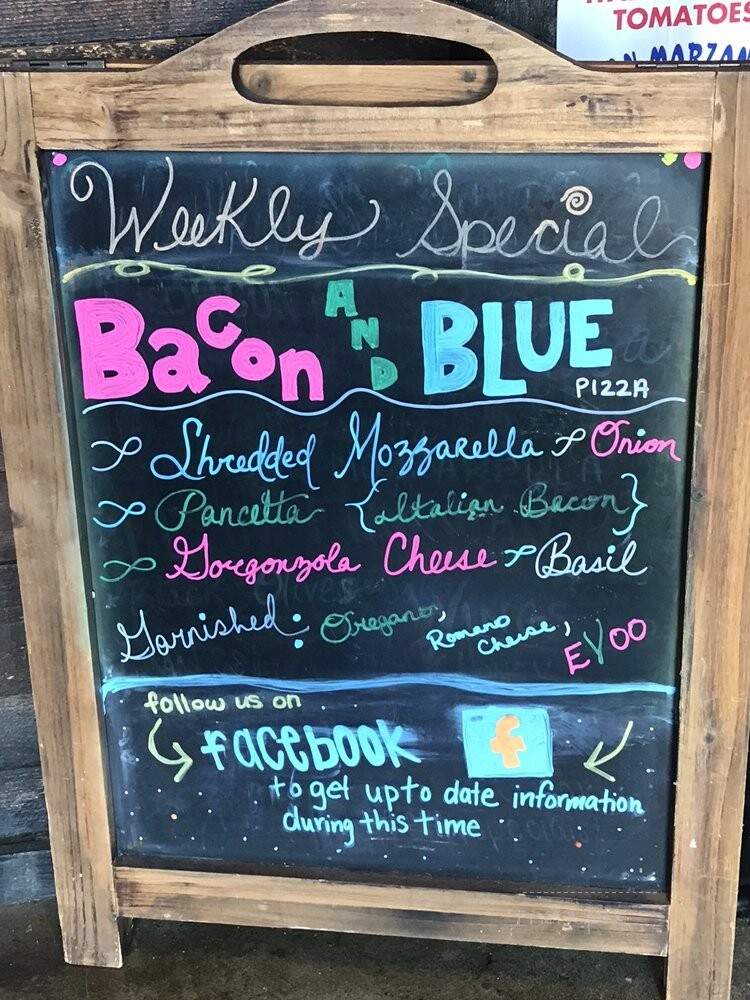 TOMATOES
Weekly Special
Bacon AND BLUE
PIZZA
Shredded Mozzarella Onion
Pancetta {Italian Bacon}
Gorgonzola Cheese Basil
Garnished: Oregano, Romano Cheese, EVOO
follow us on
facebook f
to get up to date information
during this time